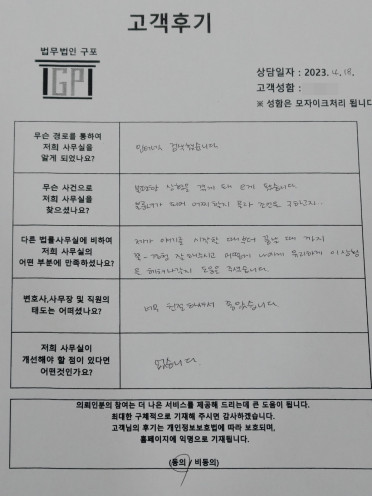 고객후기
법무법인 구포
GP
상담일자 : 2023. 4. 18.
고객성함 :
※ 성함은 모자이크처리 됩니다
무슨 경로를 통하여
저희 사무실을
알게 되었나요?
검색했습니다
무슨 사건으로
저희 사무실을
찾으셨나요?
상황을 겪게 돼
다른 법률사무실에 비하여
저희 사무실의
어떤 부분에 만족하셨나요?
제가 얘기를 시작한 때부터 끝날 때 까지
이 상황
도움을 주셨습니다.
변호사,사무장 및 직원의
태도는 어떠셨나요?
너무 친절하셔서 좋았습니다
저희 사무실이
개선해야 할 점이 있다면
어떤것인가요?
없습니다
의뢰인분의 참여는 더 나은 서비스를 제공해 드리는데 큰 도움이 됩니다.
최대한 구체적으로 기재해 주시면 감사하겠습니다.
고객님의 후기는 개인정보보호법에 따라 보호되며,
홈페이지에 익명으로 기재됩니다.
(동의 / 비동의)